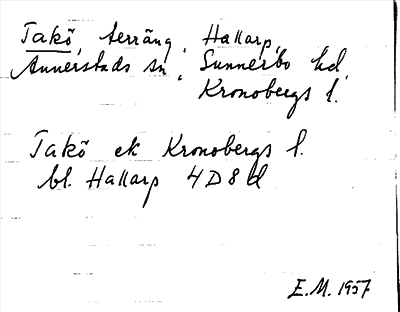 Takö, terräng, Hallarp,
Annerstads sn, Sunnerbo hd,
Kronobergs l.
Takö ek Kronobergs l.
bl. Hallarp 4D8d
E.M. 1957